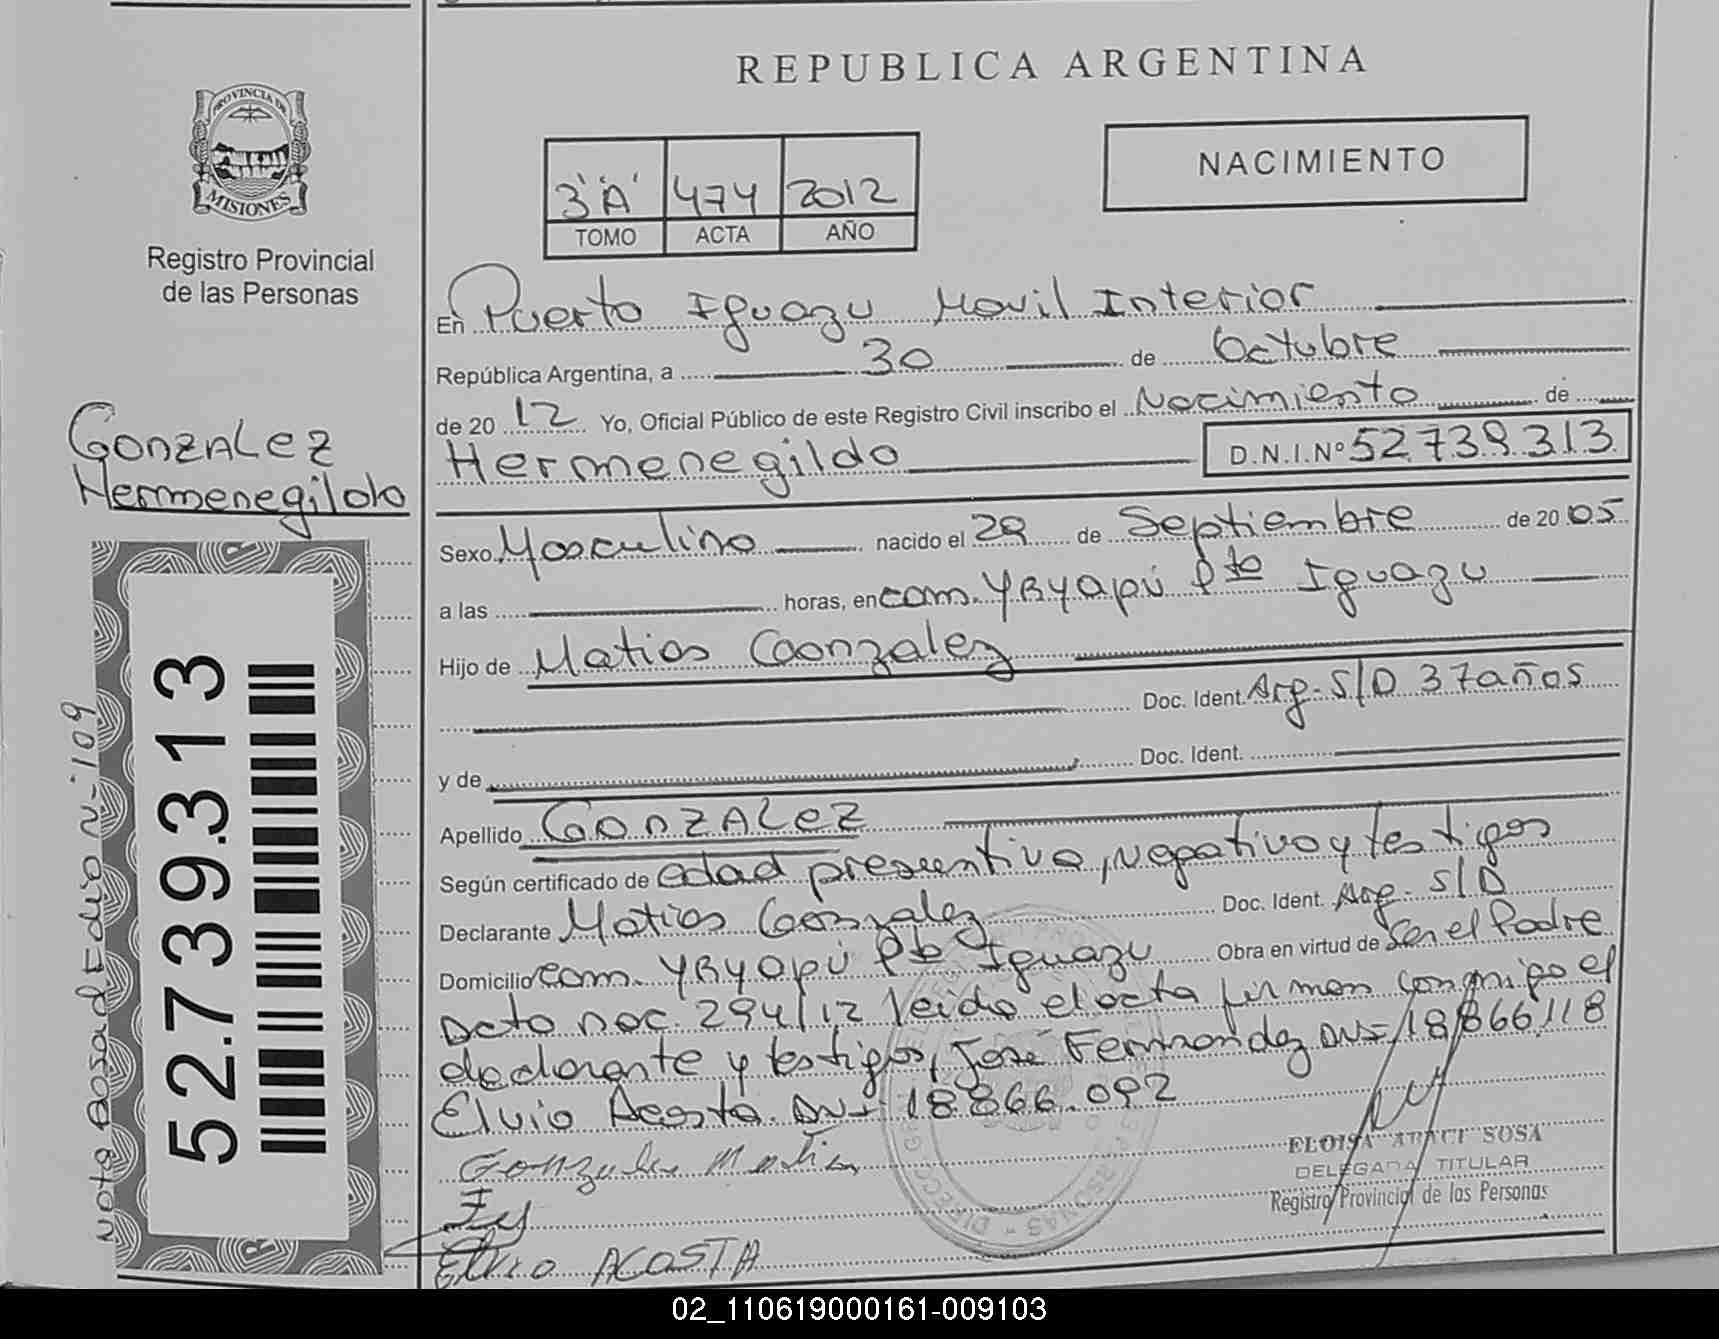 REPUBLICA ARGENTINA
PROVINCIA DE
MISIONES
Registro Provincial
de las Personas
3 "A" 474 2012
TOMO ACTA AÑO
NACIMIENTO
En Puerto Iguazu Movil Interior
República Argentina, a 30 de Octubre
de 20 12 Yo, Oficial Público de este Registro Civil inscribo el Nacimiento de
Hermenegildo D.N.I.Nº 52.739.313
GonzALez
Hermenegildo
Sexo Masculino nacido el 29 de Septiembre de 20 05
a las horas, en com. YRyapú Pto Iguazu
Hijo de Matias Gonzalez
Doc. Ident. Arg. S/D 37 años
y de Doc. Ident.
Apellido GonzALez
Según certificado de edad presuntiva, negativo y testigos
Declarante Matias Gonzalez Doc. Ident. Arg. S/D
Domicilio com. YRyapú Pto Iguazu Obra en virtud de Ser el Padre
Dcto nac. 294/12 leida el acta firman conmigo el
declarante y testigos, José Fernandez DNI 18.866.118
Elvio Acosta DNI 18.866.092
Gonzalez Matia
Elvio ACOSTA
ELOISA ARACI SOSA
DELEGADA TITULAR
Registro Provincial de las Personas
52.739.313
02_110619000161-009103